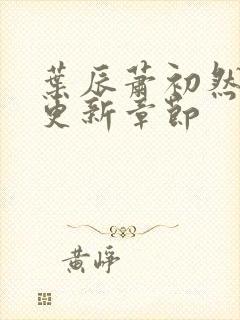 葉辰蕭初然
更新章節
黃崢